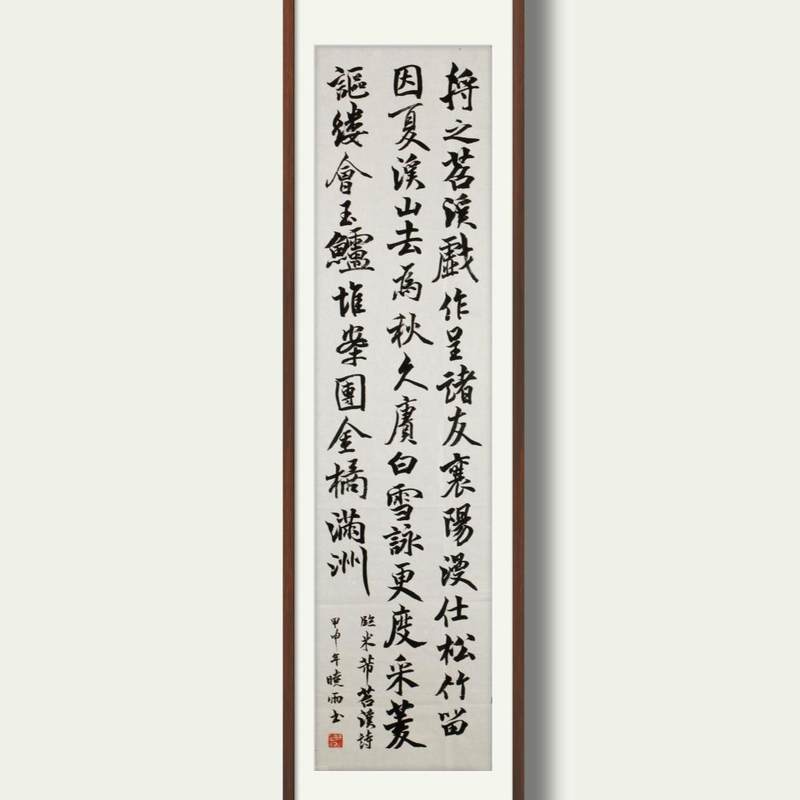 将之苕溪戲作呈諸友襄陽漫仕松竹留
因夏溪山去為秋久賡白雪詠更度采菱
謳縷會玉鱸堆案團金橘滿洲
臨米芾苕溪詩
甲申年曉雨书